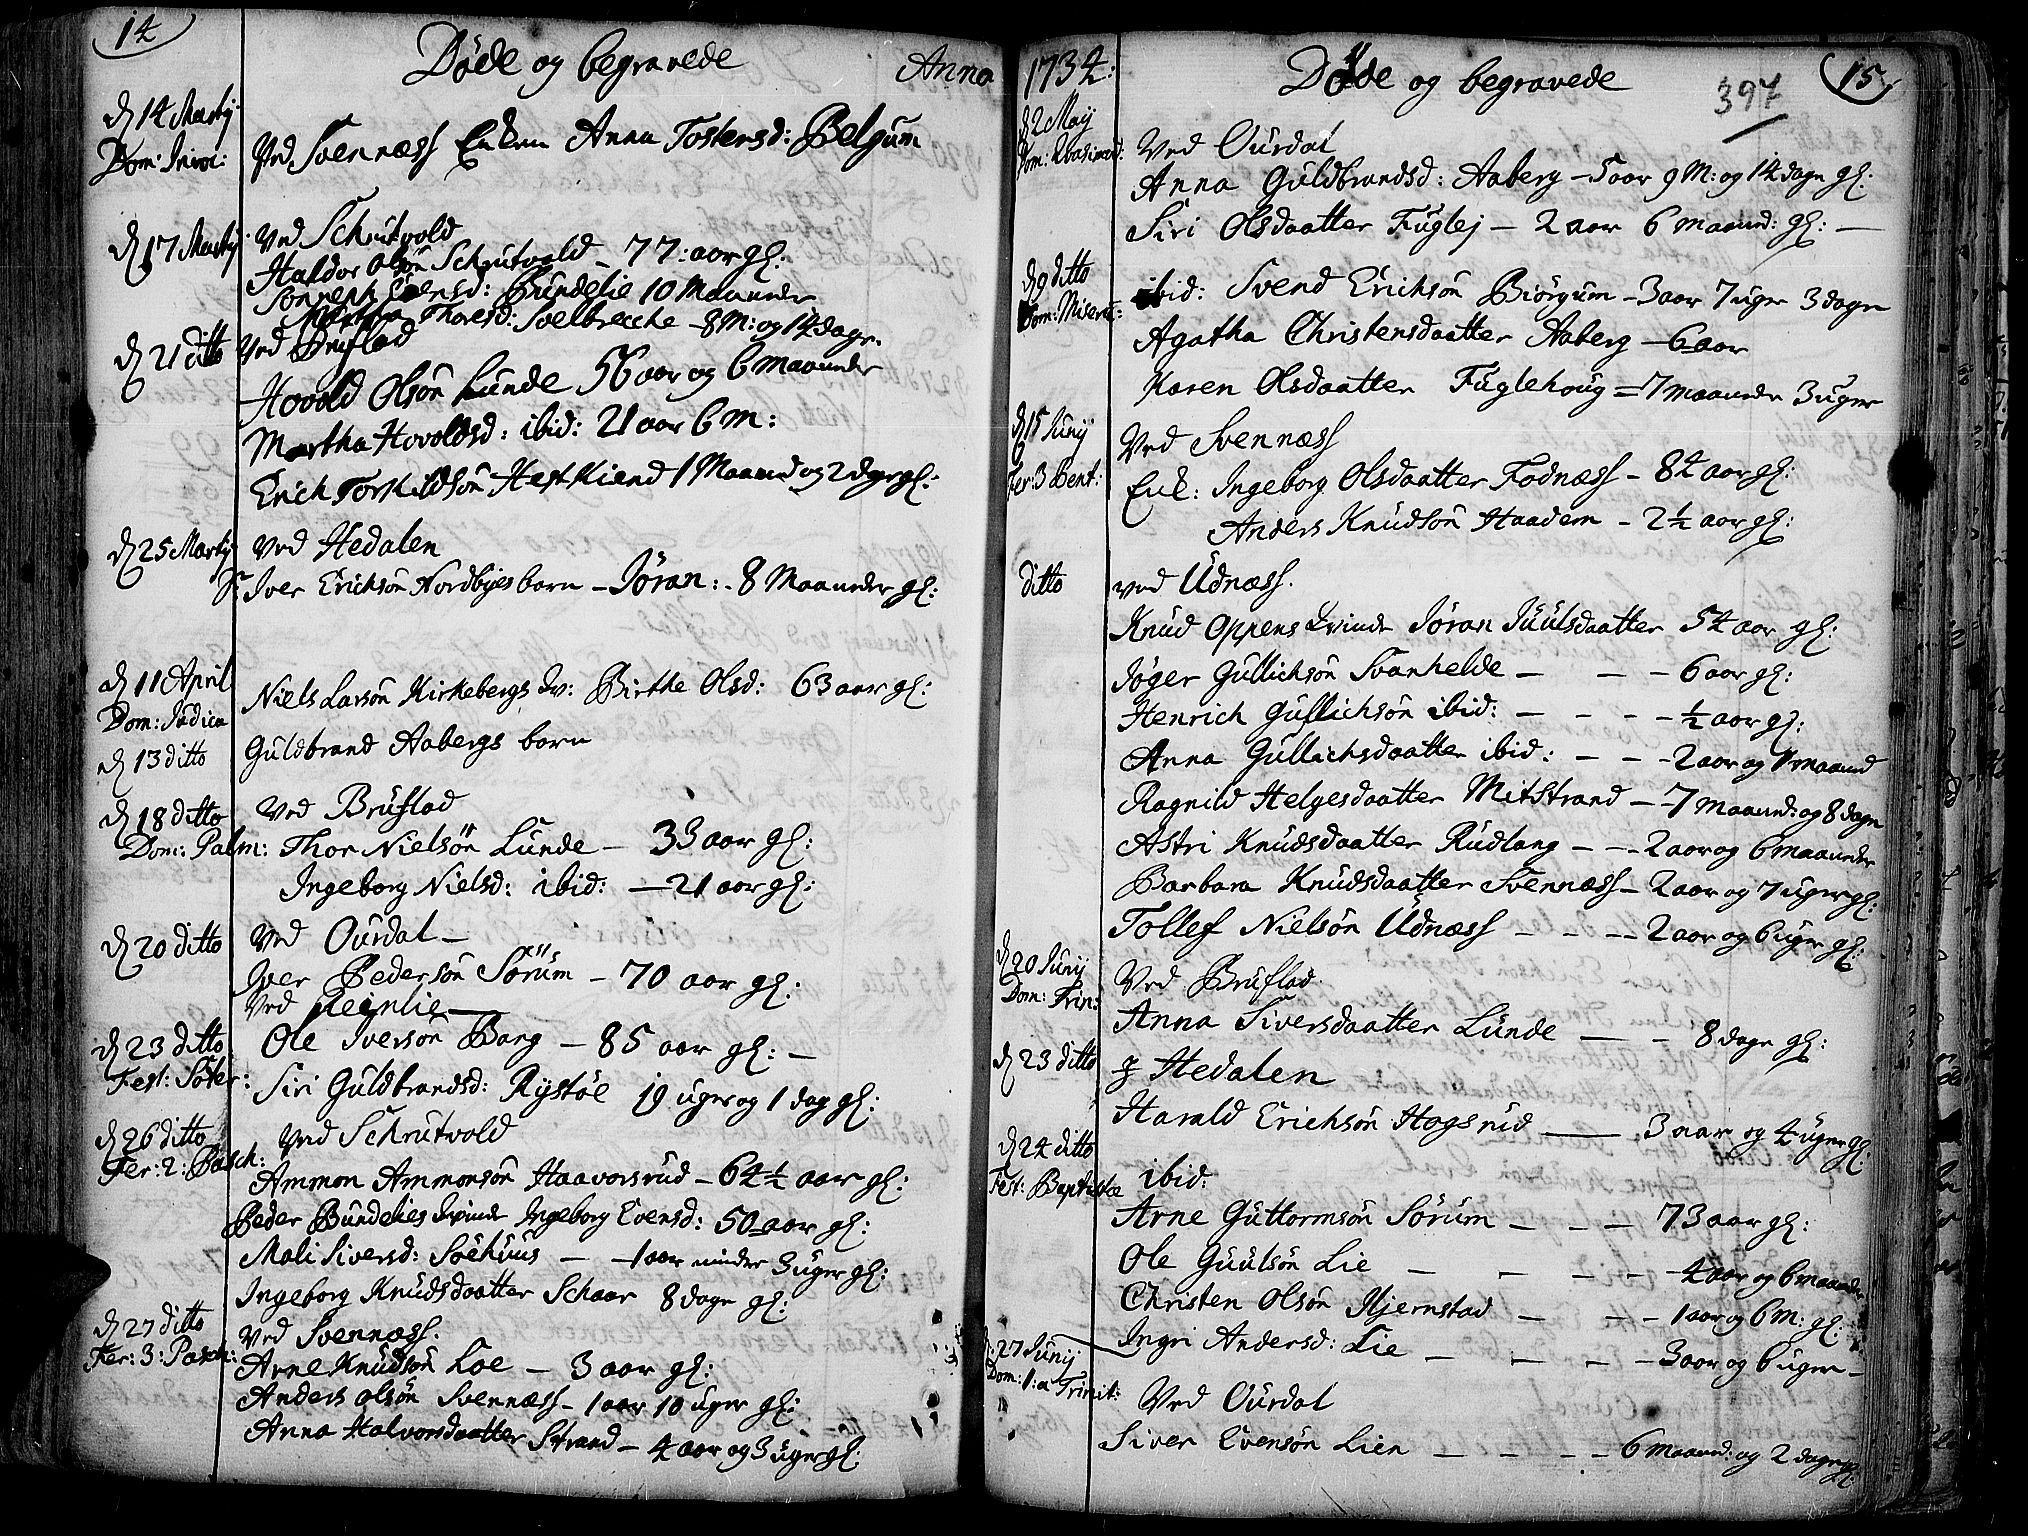 14
Döde og begravede Anno
d 14 Martij
Dom: Invoc: Ved Svennæss Enken Anna Tostensd: Belgum
d 17 Martij Ved Schrutvold
Haldor Olsön Schrutvold – 77: aar gl:
Evensd: Bundelie 10 Maaneder
Thoresd: Soelbrecche – 8 M: og 14 dage.
d 21 ditto Ved Bruflad
Hovold Olsön Lunde 56 aar og 6 maaneder
Martha Hovoldsd: ibid: 21 aar 6 M:
Erich Torkildsön Hestkiend 1 Maaned og 2 dage gl:
d 25 Martij Ved Hedalen
Iver Erichsön Nordbyes barn – Jöran: - 8 Maaneder gl:
d 11 April
Dom: Judica Niels Larsön Kirkebergs Qv: Birthe Olsd: 63 aar gl:
d 13 ditto Guldbrand Aabergs barn
d 18 ditto Ved Bruflad
Dom: Palm: Thor Nielsön Lunde – 33 aar gl:
Ingeborg Nielsd: ibid: – 21 aar gl:
d 20 ditto Ved Ourdal –
Iver Pedersön Sörum – 70 aar gl:
Ved Reinlie –
d 23 ditto Ole Iversön Bang – 85 aar gl: –
Fest: Soter: Siri Guldbrandsd: Rystöe 19 uger og 1 dag gl:
d 26 ditto Ved Schrutvold
Fer: 2: Pasch: Ammon Ammonsön Haavorsrud – 64 ½ aar gl:
Peder Bundelies Qvinde Ingeborg Evensd: 50 aar gl:
Mali Siversd: Soehuus – – 1 aar minder 3 uger gl:
Ingeborg Knudsdaatter Schaar 8 dage gl:
d 27 ditto Ved Svennæss.
Fer: 3: Pasch: Arne Knudsön Loe – 3 aar gl:
Anders Olsön Svennæss – 1 aar 10 uger gl:
Anna Halvorsdaatter Strand – 4 aar og 3 uger gl:
1734: Döde og begravede 397 15
d 2 Maij Ved Ourdal
Dom: Qvasimod: Anna Guldbrandsd: Aaberg – 5 aar 9 M: og 14 dage gl:
Siri Olsdaatter Fuglej – 2 aar 6 maaned: gl: –
d 9 ditto ibid: Svend Erichsön Biörgum – 3 aar 7 uger 3 dage
Dom: Miseric: Agatha Christensdaatter Aaberg – 6 aar
Karen Olsdaatter Fuglehoug = 7 maaneder 3 uger
d 15 Junij Ved Svennæss
Fer: 3 Pent: Enk: Ingeborg Olsdaatter Fodnæss – 84 aar gl:
Anders Knudsön Haadem – 2 ½ aar gl:
ditto ved Udnæss.
Knud Oppens Qvinde Jöran Juulsdaatter 54 aar gl:
Jöger Gullichsön Svanhelde – – – 6 aar gl:
Henrich Gullichsön ibid: – – – – ½ aar gl:
Anna Gullichsdaatter ibid: – – – 2 aar og 1 maaned
Ragnild Helgesdaatter Mitstrand – – 7 maaned: og 8 dage
Astri Knudsdaatter Rudlang – – – 2 aar og 6 maaneder
Barbara Knudsdaatter Svennæss – 2 aar og 7 uger gl:
Tollef Nielsön Udnæss – – – – 2 aar og 6 uger gl:
d 20 Junij Ved Bruflad.
Dom: Trin: Anna Siversdaatter Lunde – – 8 dage gl:
d 23 ditto Hedalen
Harald Erichsön Hogsrud – 3 aar og 4 uger gl:
d 24 ditto
Fest: Baptistæ ibid:
Arne Guttormsön Sörum – – – 73 aar gl:
Ole Guulsön Lie – – – – – 4 aar og 6 maaneder
Christen Olsön Hjernstad – – – 1 aar og 6 M: gl:
Ingri Andersd: Lie – – – – 3 aar og 6 uger –
27 Junij
Dom: 1: a Trinit: Ved Ourdal
Siver Evensön Lien – – – – 6 maaned: og 2 dage gl: